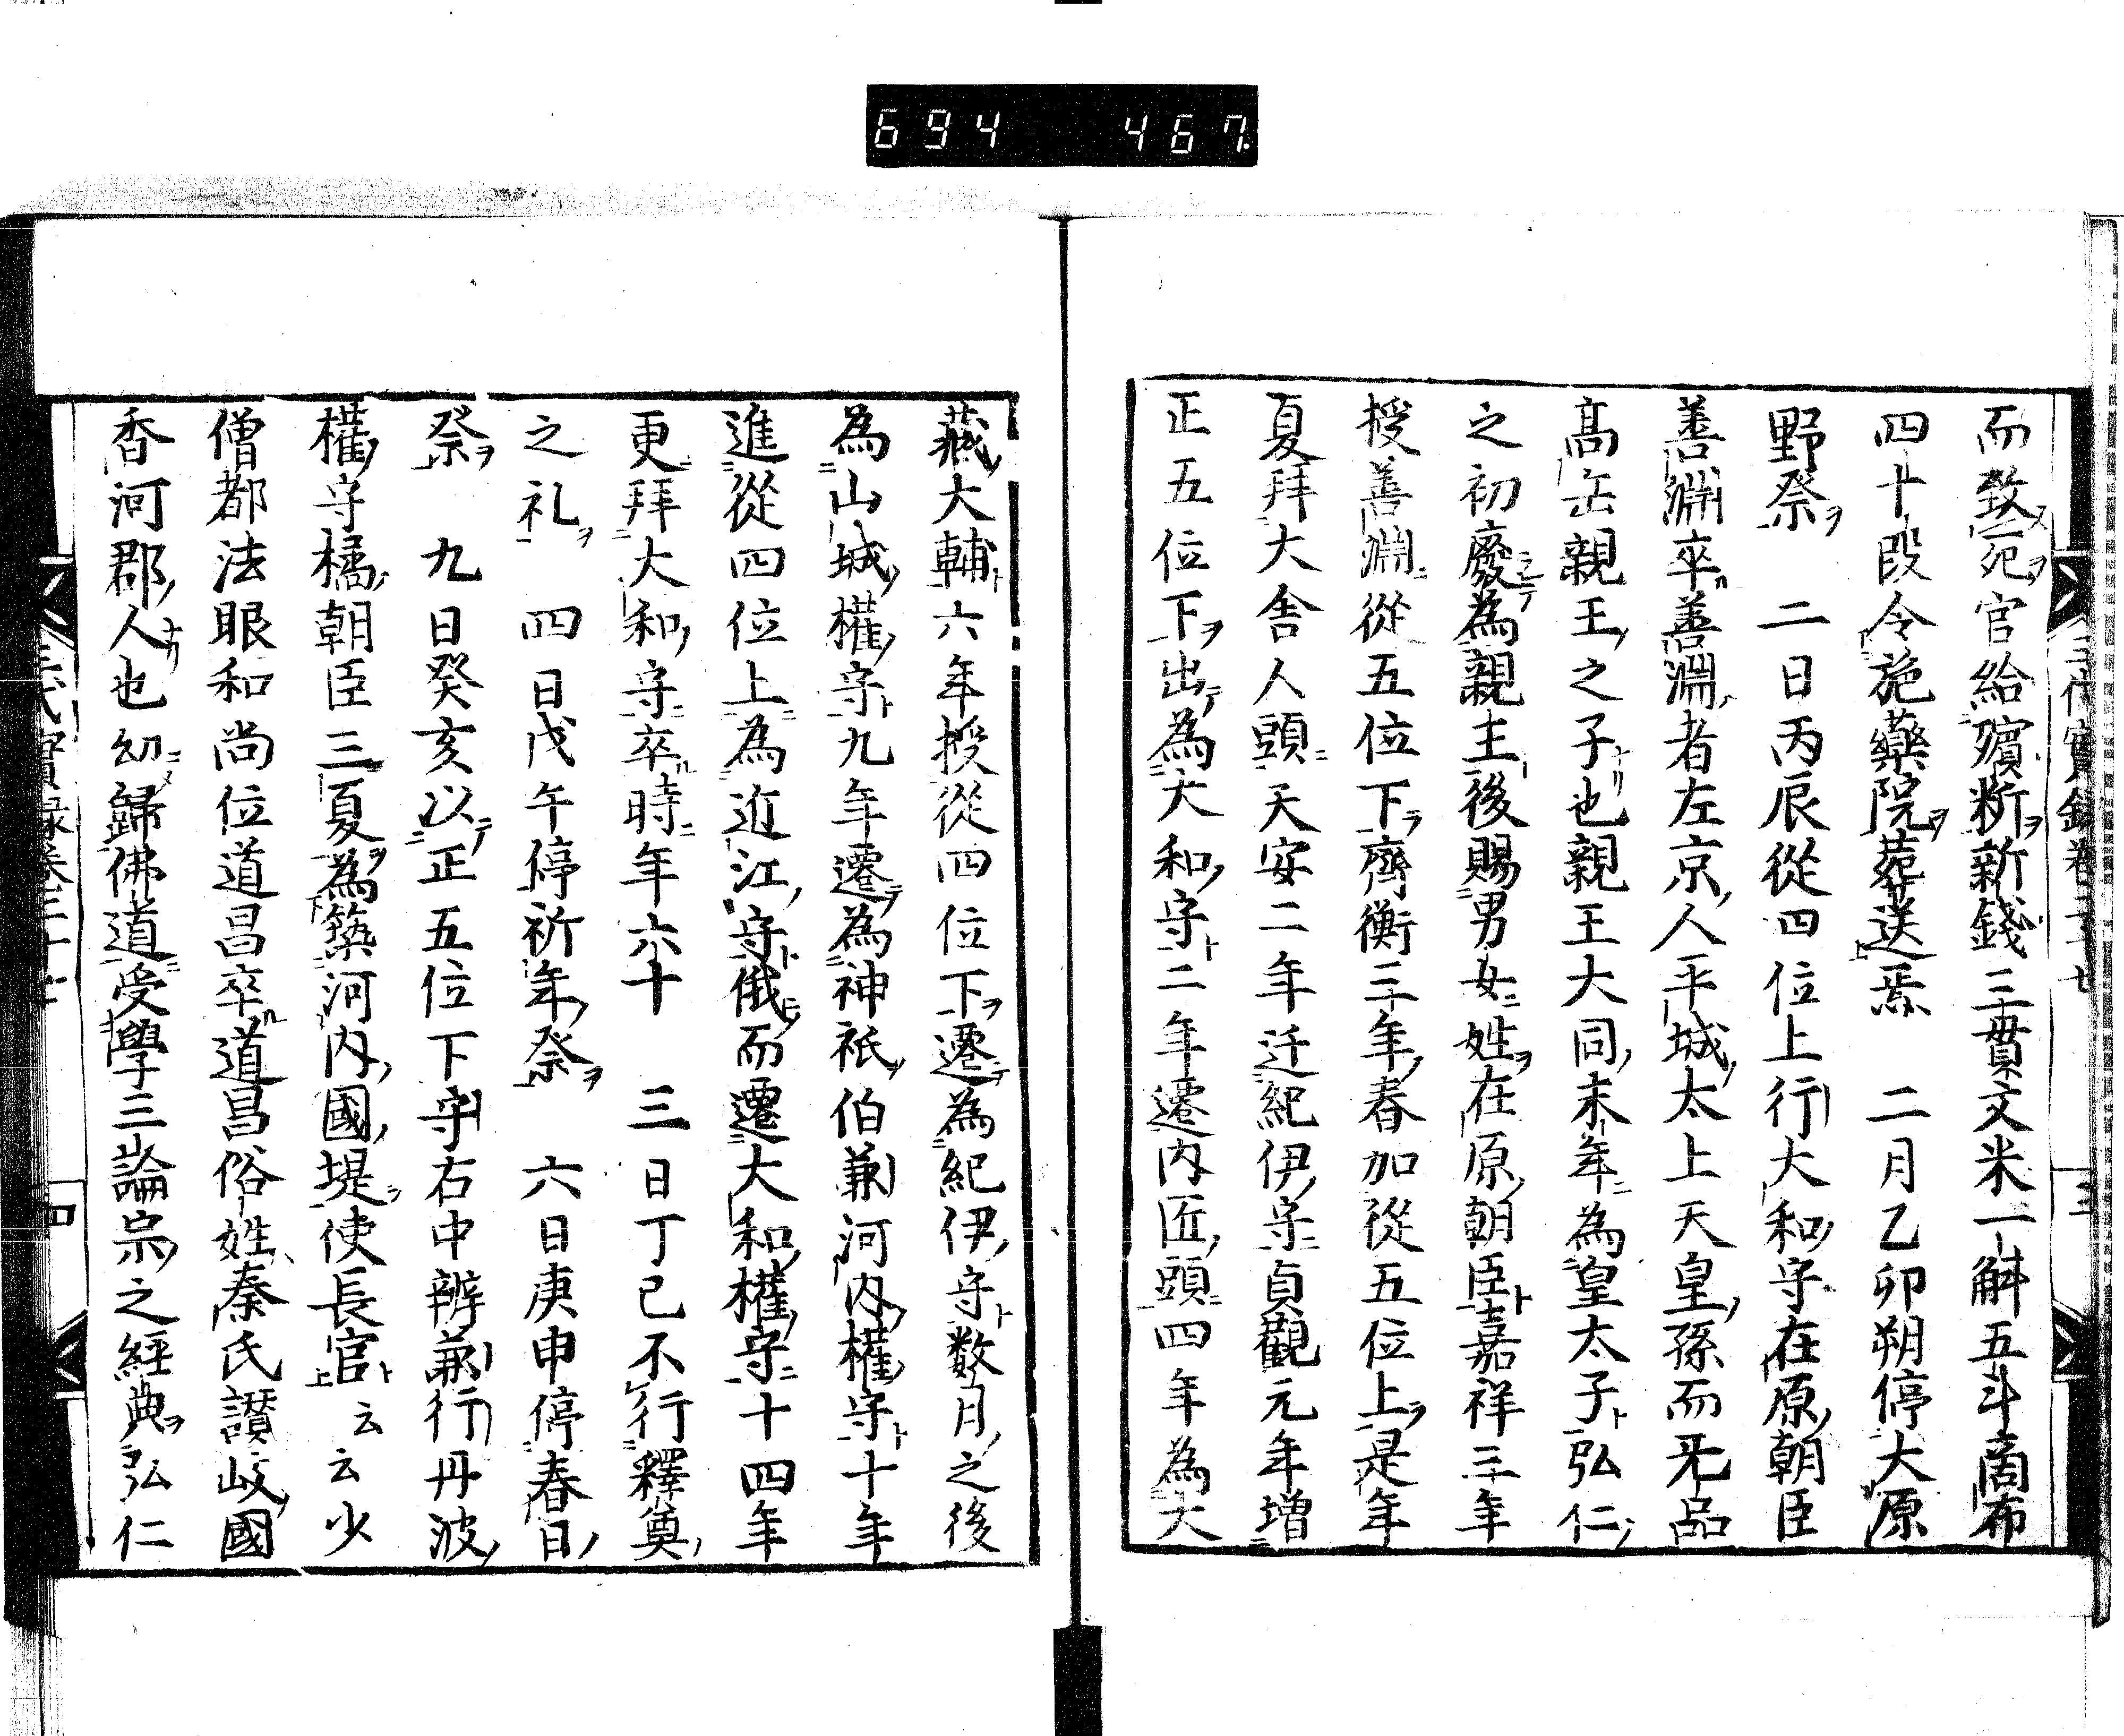 694 467.
而致死官給殯斂新錢三貫文米一斛五斗商布
四十段令施藥院葬送焉 二月乙卯朔停大原
野祭 二日丙辰從四位上行大和守在原朝臣
善淵卒善淵者左京人平城太上天皇孫而旡品
髙岳親王之子也親王大同末年為皇太子弘仁
之初廢為親王後賜男女姓在原朝臣嘉祥三年
授善淵從五位下齊衡三年春加從五位上是年
夏拜大舎人頭天安二年迁紀伊守貞觀元年増
正五位下出為大和守二年遷内匠頭四年為大
三代實録卷三十七 三
藏大輔六年授從四位下遷為紀伊守数月之後
為山城權守九年遷為神祇伯兼河内權守十年
進從四位上為近江守俄而遷大和權守十四年
更拜大和守卒時年六十 三日丁已不行釋奠
之礼 四日戊午停祈年祭 六日庚申停春日
祭 九日癸亥以正五位下守右中辨兼行丹波
權守橘朝臣三夏為築河内國堤使長官云云少
僧都法眼和尚位道昌卒道昌俗姓秦氏讃岐國
香河郡人也幼歸佛道受學三論宗之經典弘仁
三代實録卷三十七 四